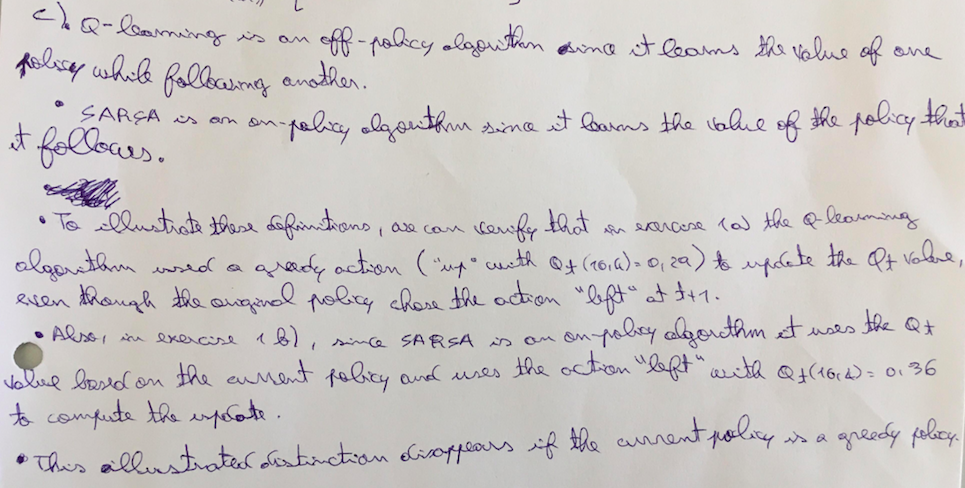 c). Q-learning is an off-policy algorithm since it learns the value of one
policy while following another.
• SARSA is an on-policy algorithm since it learns the value of the policy that
it follows.
• To illustrate these definitions, we can verify that in exercise (a) the Q-learning
algorithm used a greedy action ("up" with Qt(16,4)=0,29) to update the Qt value,
even though the original policy chose the action "left" at t+1.
• Also, in exercise (b), since SARSA is an on-policy algorithm it uses the Qt
value based on the current policy and uses the action "left" with Qt(16,4)=0,36
to compute the update.
• This illustrated distinction disappears if the current policy is a greedy policy.